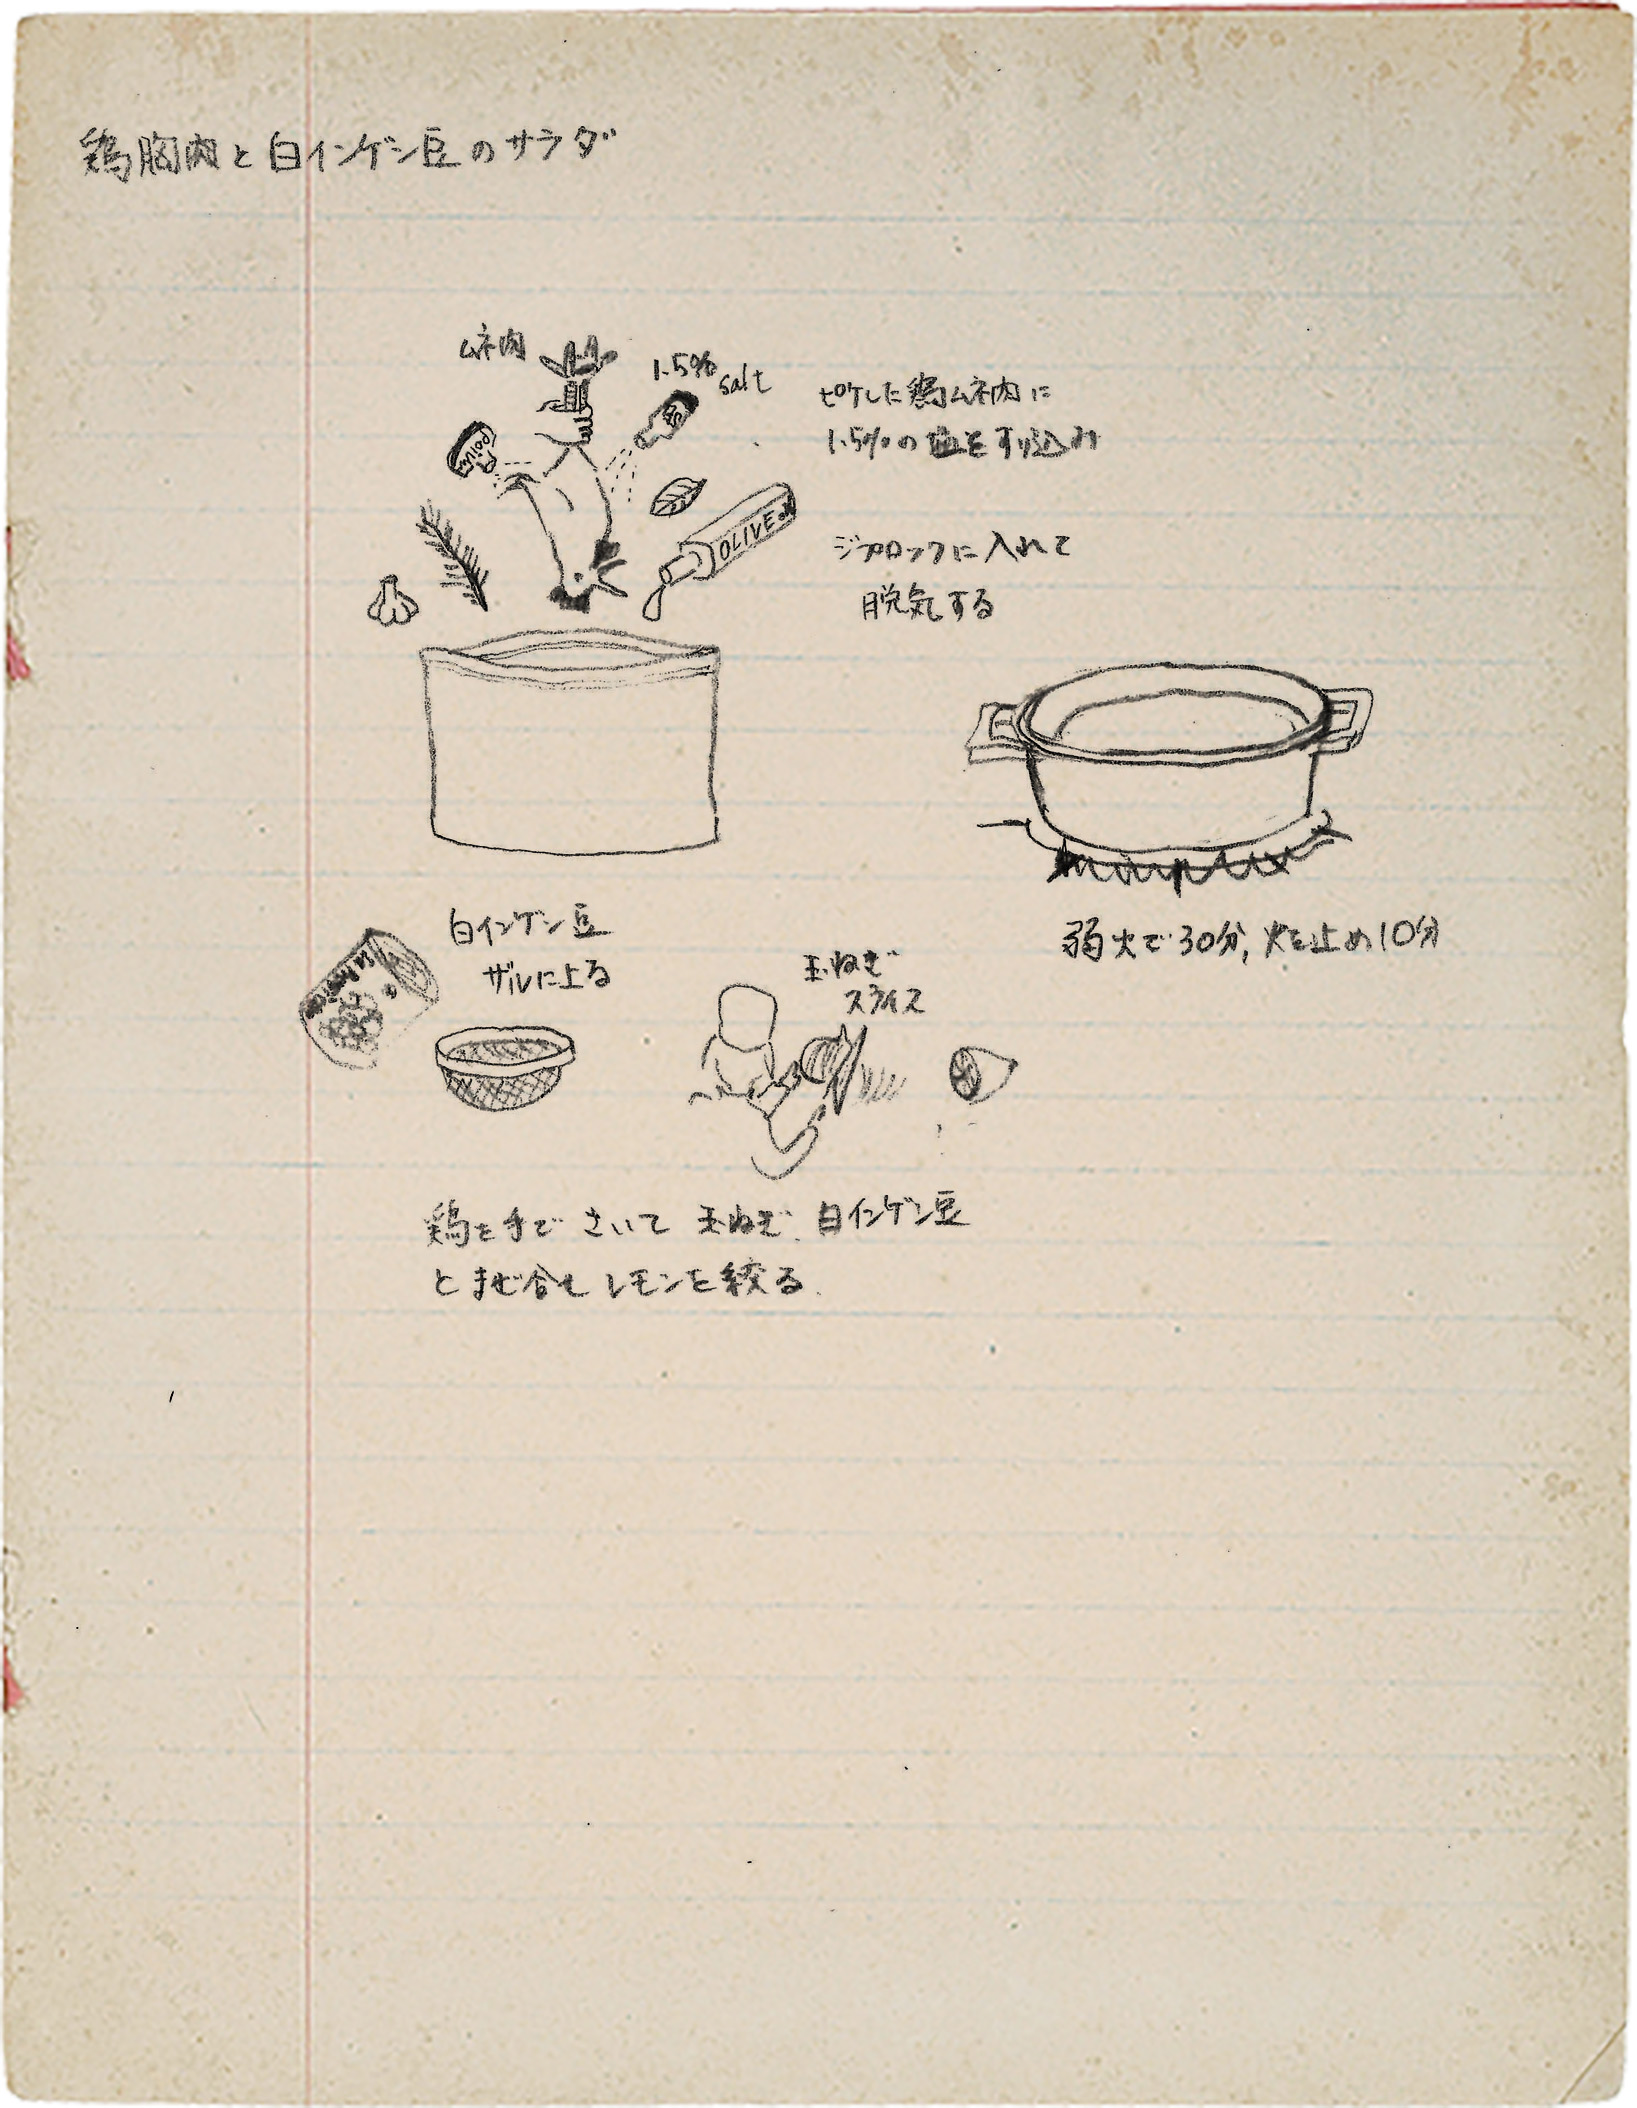 鶏胸肉と白インゲン豆のサラダ
ムネ肉
1.5%
salt
ピケした鶏ムネ肉に
1.5%の塩をすり込み
OLIVE oil
ジプロックに入れて
脱気する
弱火で30分,火を止め10分
白インゲン豆
ザルに上る
玉ねぎ
スライス
鶏を手でさいて 玉ねぎ、白インゲン豆
とまぜ合せ レモンを絞る.